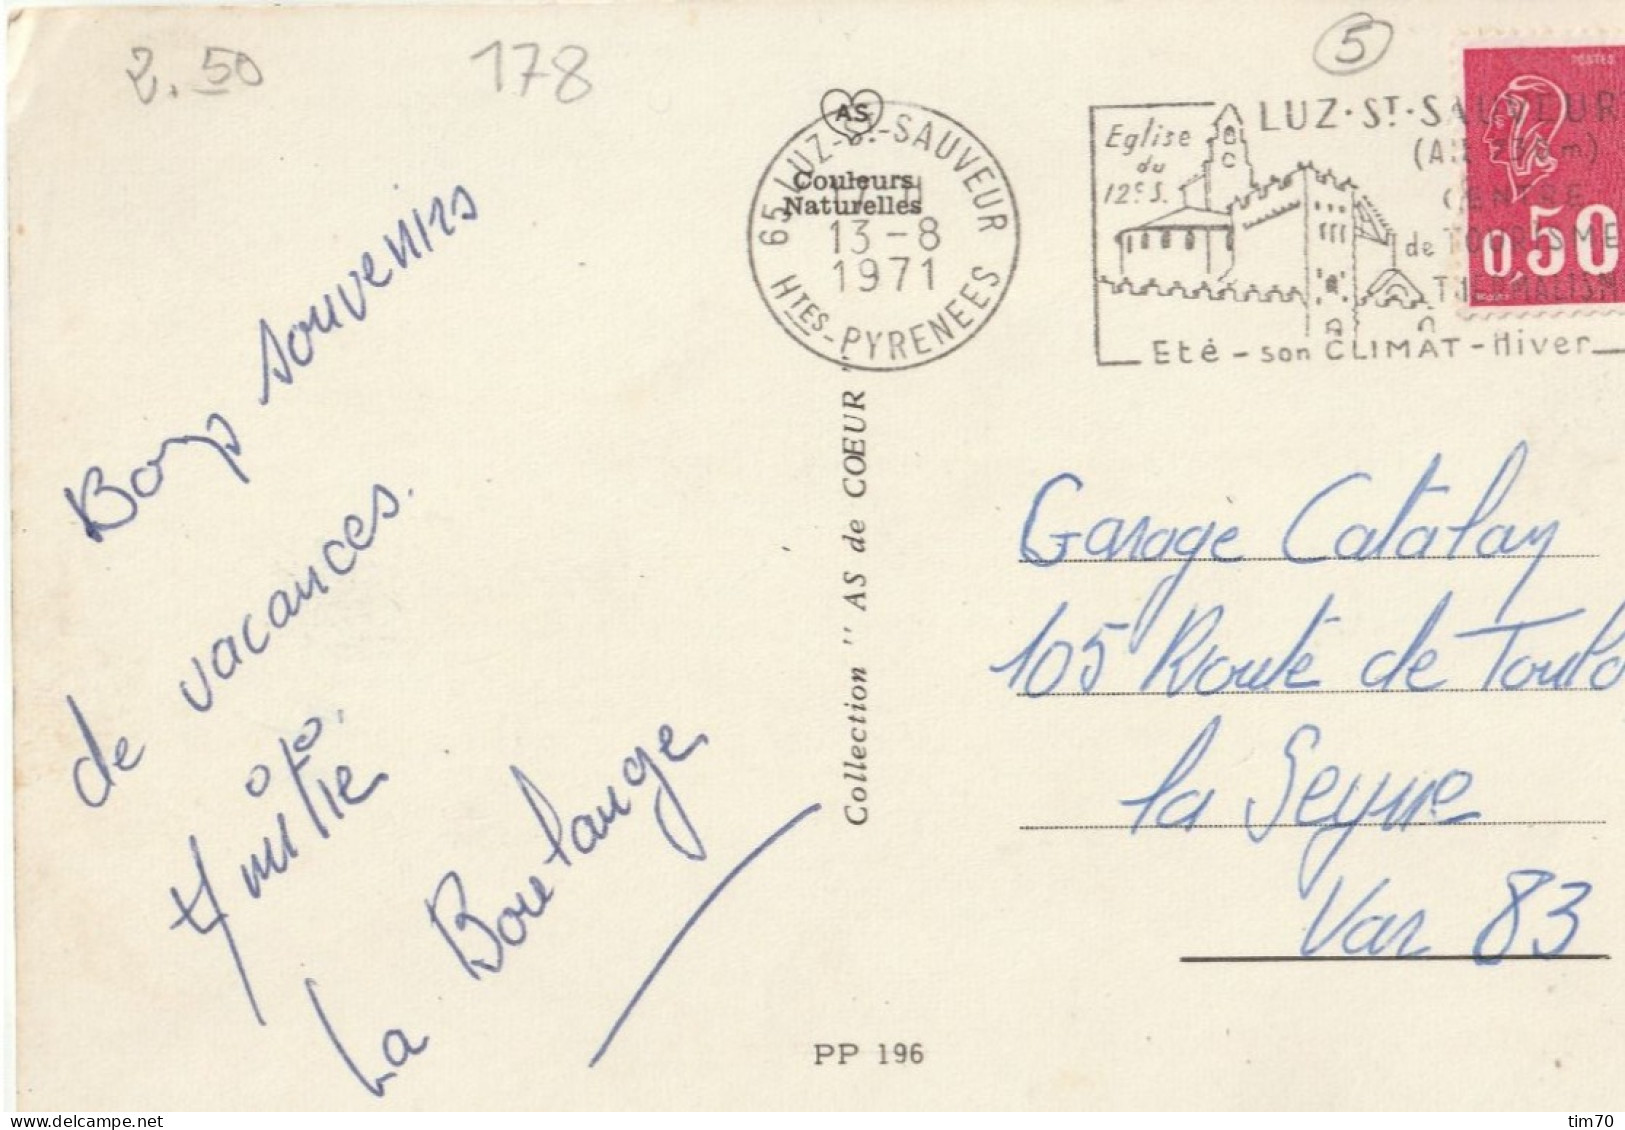 2.50
178
5
AS
Couleurs
Naturelles
65 LUZ-St-SAUVEUR
17 H
13-8
1971
Htes-PYRENEES
Eglise
du
12e S.
LUZ·ST·SAUVEUR
CENTRE
de TOURISME
THERMALISM
Eté - son CLIMAT - Hiver
POSTES
0,50
Bons souvenirs
de vacances.
Amitié
La Boulange
Collection " AS de CŒUR "
Garage Catalan
105 Route de Toulo
la Seyne
Var 83
PP 196
delcampe.net
tim70